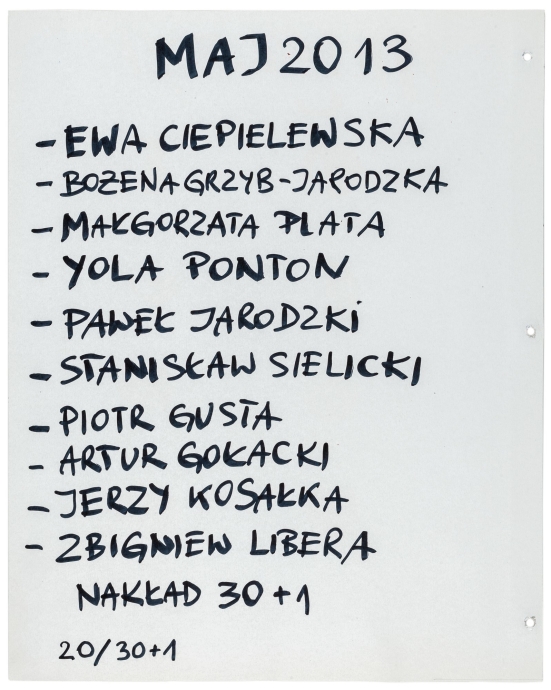 MAJ 2013
- EWA CIEPIELEWSKA
- BOŻENA GRZYB-JARODZKA
- MAŁGORZATA PLATA
- YOLA PONTON
- PAWEŁ JARODZKI
- STANISŁAW SIELICKI
- PIOTR GUSTA
- ARTUR GOŁACKI
- JERZY KOSAŁKA
- ZBIGNIEW LIBERA
NAKŁAD 30+1
20/30+1